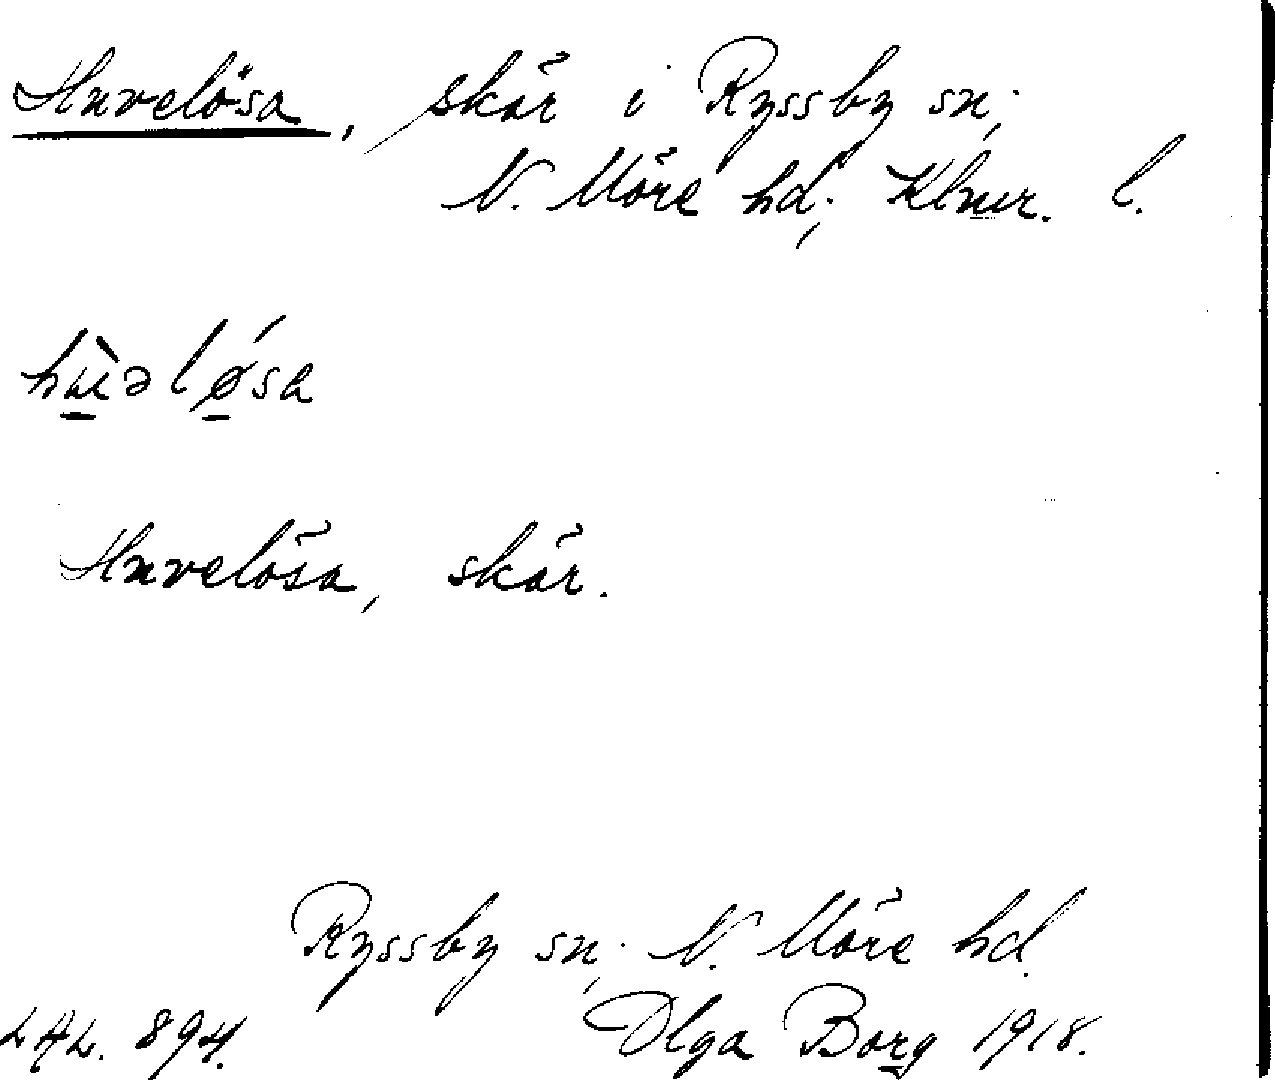 Huvelösa, skär i Ryssby sn;
N. Möre hd; Klmr. l.
hùəlǿsa
Huvelösa, skär.
Ryssby sn; N. Möre hd.
LAL. 894. Olga Borg 1918.